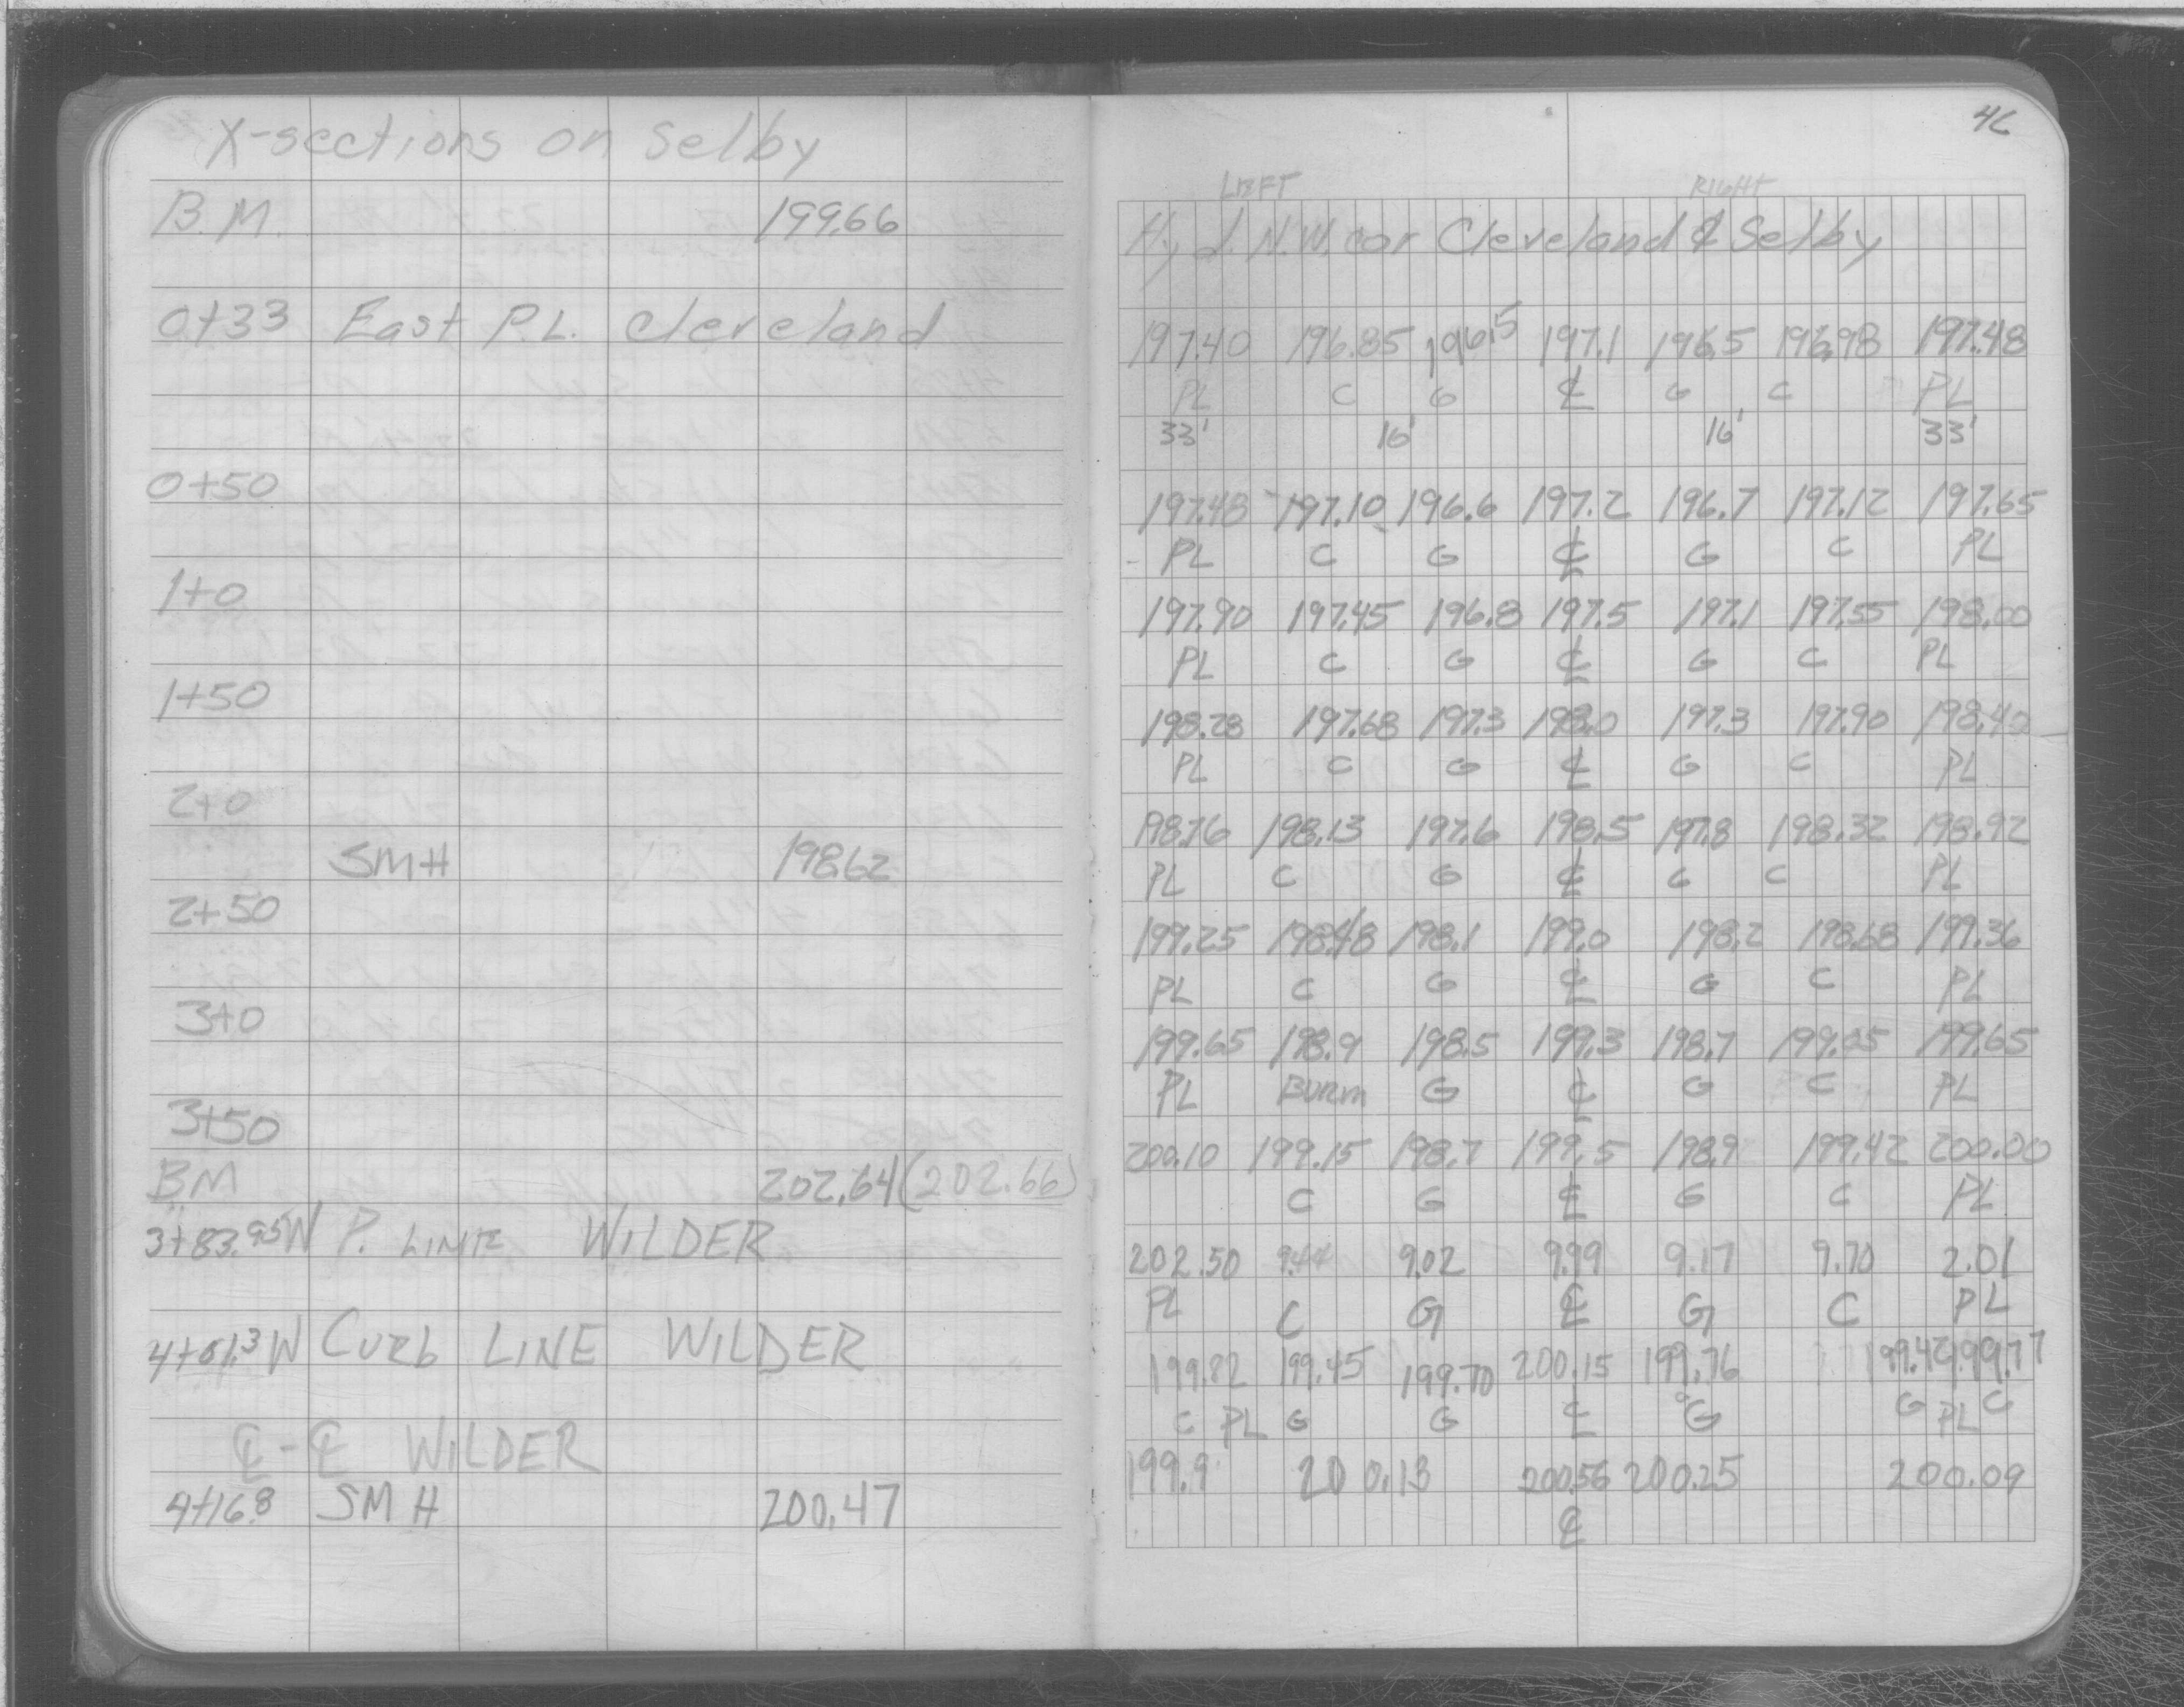 X-sections on Selby
B.M. 199.66
0+33 East P.L. Cleveland
0+50
1+0
1+50
2+0
SMH 198.62
2+50
3+0
3+50
BM 202.64 (202.66)
3+83.95 W P. LINE WILDER
4+01.3 W CURB LINE WILDER
℄ - ℄ WILDER
4+16.8 SMH 200.47
46
LEFT RIGHT
Hyd. N.W. cor Cleveland & Selby
197.40 196.85 196.5 197.1 196.5 196.98 197.48
PL C G ℄ G C PL
33' 16' 16' 33'
197.48 197.10 196.6 197.2 196.7 197.12 197.65
PL C G ℄ G C PL
197.90 197.45 196.8 197.5 197.1 197.55 198.00
PL C G ℄ G C PL
198.28 197.68 197.3 198.0 197.3 197.90 198.40
PL C G ℄ G C PL
198.76 198.13 197.6 198.5 197.8 198.32 198.92
PL C G ℄ G C PL
199.25 198.48 198.1 199.0 198.2 198.68 199.36
PL C G ℄ G C PL
199.65 198.9 198.5 199.3 198.7 199.05 199.65
PL BURM G ℄ G C PL
200.10 199.15 198.7 199.5 198.9 199.42 200.00
C G ℄ G C PL
202.50 9.44 9.02 9.99 9.17 9.70 2.01
PL C G ℄ G C PL
199.82 199.45 199.70 200.15 199.76 199.42 199.77
C PL G G ℄ G G PL C
199.9 200.13 200.56 200.25 200.09
℄